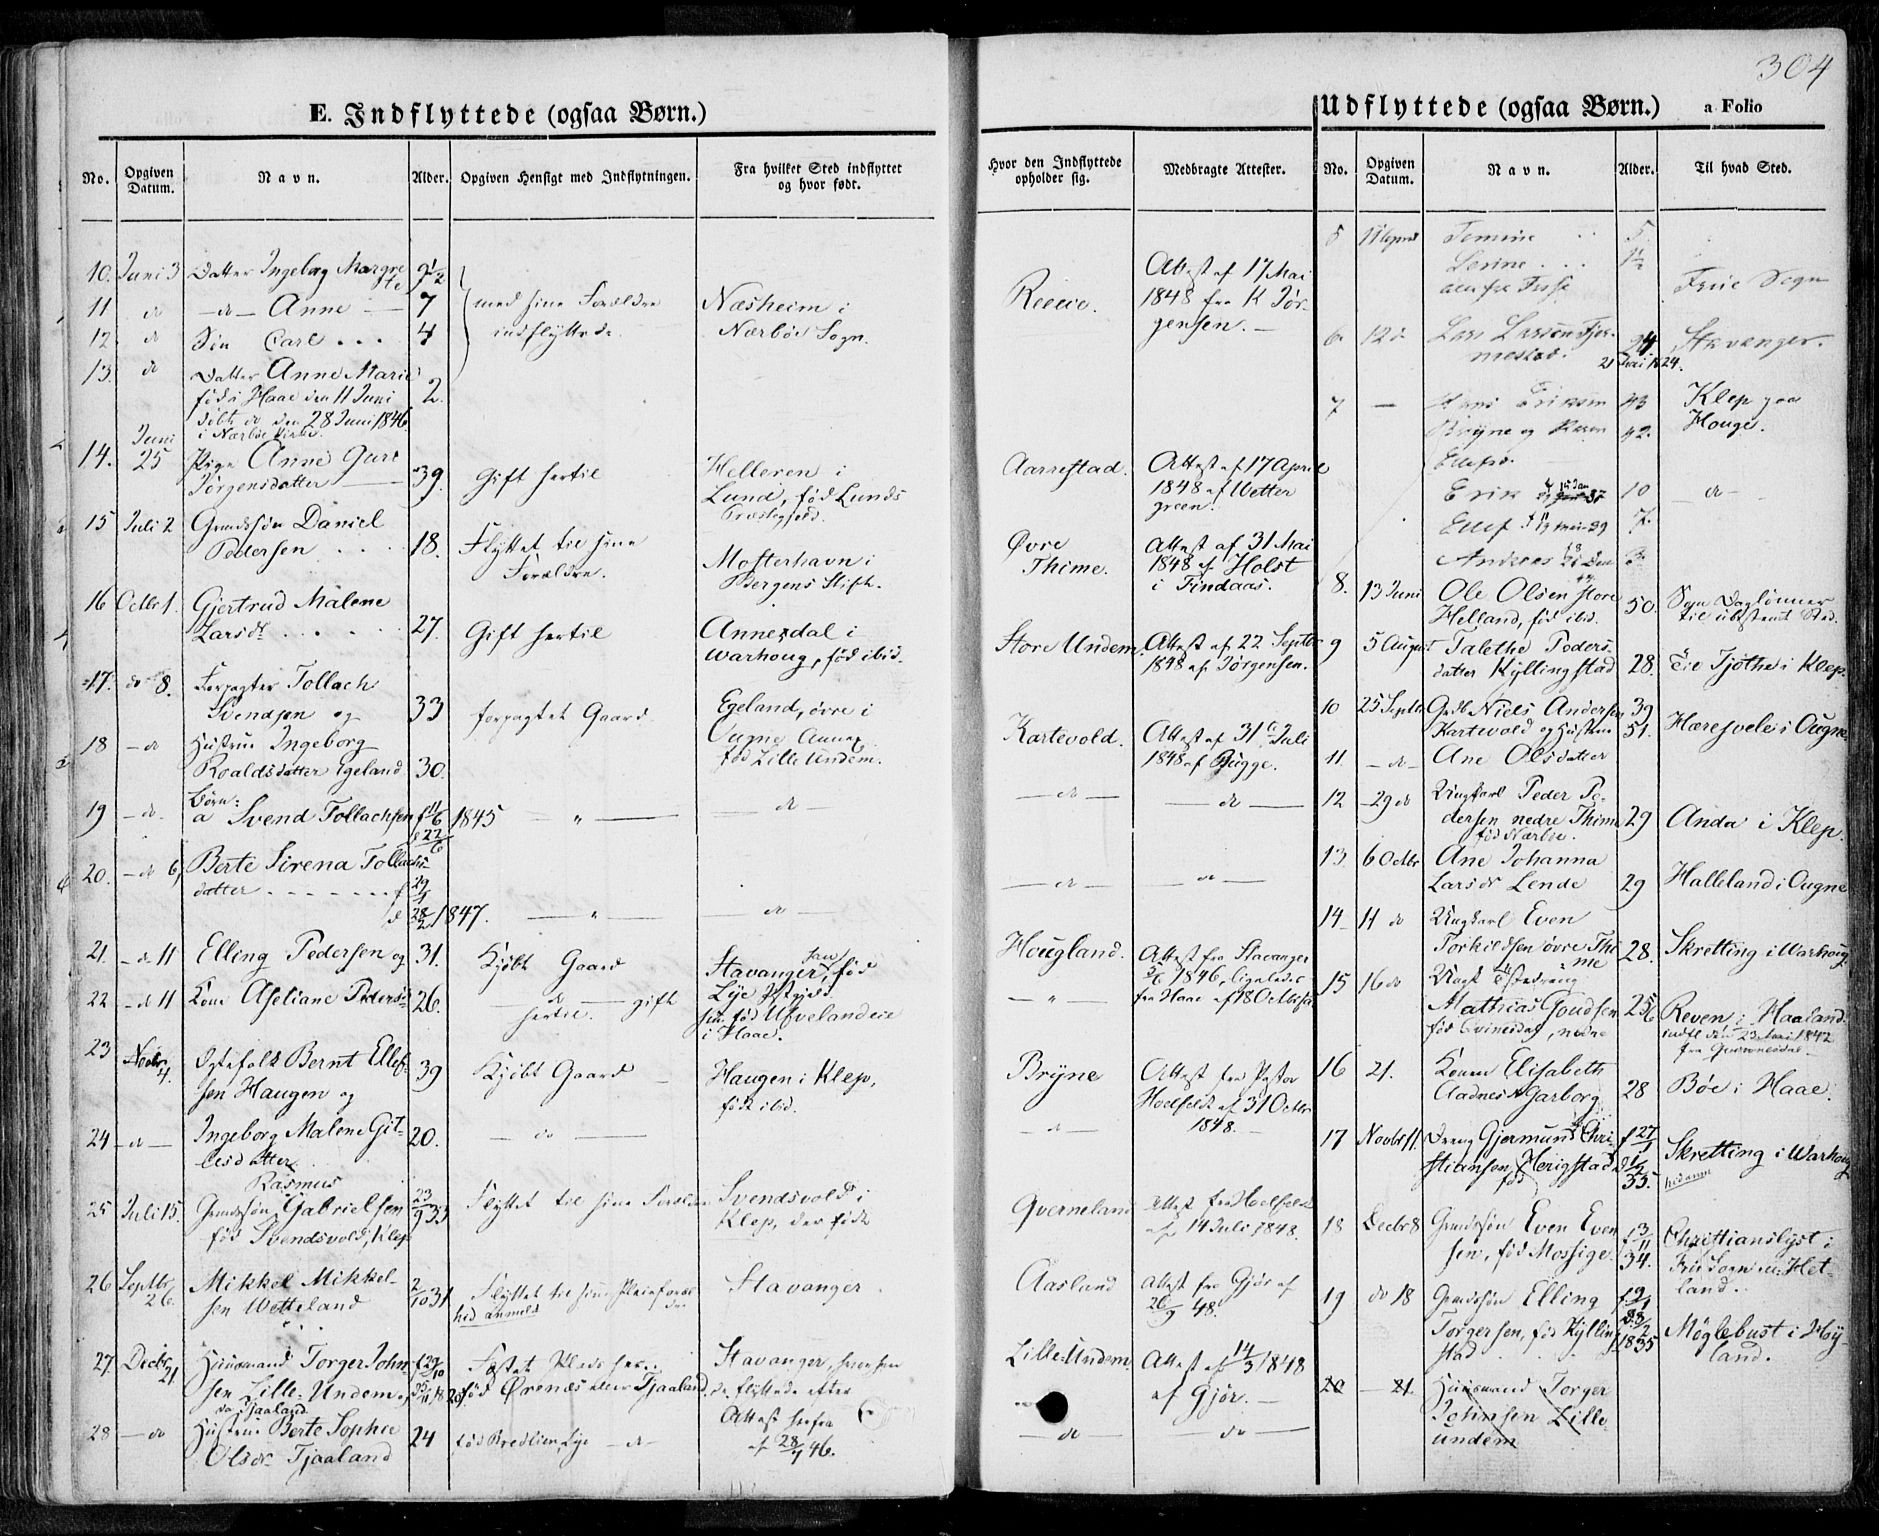 E. Indflyttede (ogsaa Børn.)
No. Opgiven Datum. Navn. Alder. Opgiven Hensigt med Indflytningen. Fra hvilket Sted indflyttet og hvor født.
10. Juni 3 Datter Ingeborg Margrete 9 1/2
11 do -do- Anne 7 med sine Forældre Næsheim i
12. do Søn Carl 4 indflyttede. Nærbøe Sogn.
13. do Datter Anne Marie 2.
fød i Haae den 11 Juni
døbt do den 28 Juni 1846
i Nærbøe Kirke.
14. Juni 25 Pige Anne Guri
Jörgensdatter 39. Gift hertil Helleren i
Lund, fød Lunds
Præstegjeld.
15 Juli 2 Daniel
Pedersen 18. Flyttet til sine
Forældre. Mosterhavn i
Bergens Stift.
16 Octbr 1. Gjertrud Malene
Larsdr 27. Gift hertil Annesdal i
Warhoug, fød ibid.
17. do 8. Forpagter Tollach
Svendsen og 33 forpagtet Gaard Egeland, øvre i
Ougne Annex
18 -do Hustrue Ingeborg
Roaldsdatter Egeland 30. fød Lille Undem.
19 -do- Børn:
a Svend Tollachsen f 11/6 1845 - " - - do -
d 22/6
20. -do 6, Berte Sirena Tollachs-
datter f 29/1
d 28/2 1847. - " - do -
21. -do 11 Elling Pedersen og 31. Kjøbt Gaard Stavanger, fød
22 -do 11 Kone Aseliane Peders 26. -do- gift
hertil. Lye
fød Ufvelandeie
i Haae.
23 Novbr 4. Ægtefolk Bernt Ellef-
sen Haugen og 39 Kjøbt Gaard Haugen i Klep,
født ibid.
24 -do- Ingeborg Malene Git-
lesdatter 20. - do -
25 Juli 15. Rasmus
Gabrielsen 23/9 33 Flyttet til sine Forældre Svendsvold i
fød Svendsvold, Klep Klep, der født
26 Septbr 26. Mikkel Mikkel-
sen Wetteland 2/10 31 Flyttet til sine Pleieforæl
dre Stavanger
hid anmeldt
27. Decbr 21 Huusmand Torger John
sen Lille-Undem og f 29/10 Fæstet Plads her. Stavanger, hvorhen
do Tjaaland fød Ørenæs eller Tjaaland de flyttede efter
28 -do Hustrue Berte Sophie
Olsdr Tjaaland 24 fød Bredlien, Lye -do- Attest herfra
af 28/9 46.
304
Udflyttede (ogsaa Børn.) a Folio
Hvor den Indflyttede opholder sig. Medbragte Attester. No. Opgiven Datum. Navn. Alder. Til hvad Sted.
Reeeie. Attest af 17 Mai
1848 fra K Jör-
gensen.
Aarrestad. Attest af 17 April
1848 af Wetter
green.
Øvre
Thime. Attest af 31 Mai
1848 af Holst
i Findaas.
Store Undem. Attest af 22 Septbr
1848 af Jörgensen.
Kartevold. Attest af 31 Juli
1848 af Bugge.
- do - - do -
- do - - do -
Hougland. Attest fra Stavanger
5/6 1846, ligeledes
- " - fra Haae af 18 Octbr
Bryne Attest fra Pastor
Hoelfeldt af 31 Octbr
- do - 1848.
Qverneland Attest fra Hoelfeldt
af 14 Juli 1848.
Aasland Attest fra Gjør af
26/9 48.
Lille-Undem. Attest af 14/3 1848
af Gjør.
- do - - do -
5 Tomine 5
Serine 1 1/2 Frue Sogn
6. 12 d Lars Larsen Tjer-
mestad. 24 Stavanger.
21 Mai 1824.
7 - Eriksen 43 Klep paa
Bryne og Karen 42. Houge.
Erik 10 -do-
Ellef 7.
Andreas
8. 13 Juni Ole Olsen store
Helland, fød ibid. 50. Som Daglønner
til ubestemt Sted.
9 5 August Talethe Peders-
datter Kyllingstad 28. Tjøthe i Klep.
10 25 Septbr Niels Andersen 39
Kartevold og Hustrue 51. Hæresvele i Ougne
11. -do- Ane Olsdatter
12 29 do Ungkarl Peder Pe-
dersen nedre Thime 29 Anda i Klep.
fød Nærbøe.
13 6 Octbr Ane Johanna
Larsdr Lende 29 Halleland i Ougne
14 11 do Ungkarl Even
Torkildsen øvre Thi
me 28. Skretting i Warhoug
15 16 do
Mathias Goudsen 25 Reven i Haaland
16 21. Konen Elisabeth
Aadnesdr Garborg 28 Bøe i Haae.
17 Novbr 11. Dreng Gjermund Chri-
stiansen Herigstad f 27/1
d 1/2
35. Skretting i Warhoug
18 Decbr 8 Even Even
sen, fød Mossige. f 3/11
34. Christianslyst i
Frue Sogn Het-
land.
19 do 18 Elling
Torgersen, fød Kylling
stad f 9/1
1835 Møglebust i Høy-
land.
20 - 21. Huusmand Torger
Johnsen Lille
undem